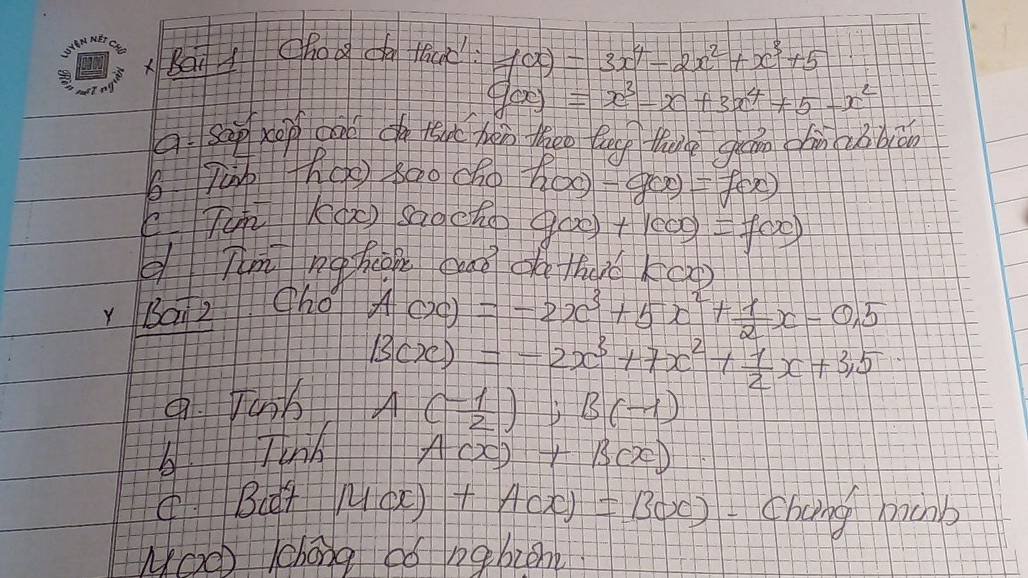 LUYỆN NÉT CHỮ
x Bài 1 Cho 2 đa thức: f(x) = 3x⁴ - 2x² + x³ + 5
g(x) = x³ - x + 3x⁴ + 5 - x²
a. Sắp xếp các đa thức trên theo lũy thừa giảm dần của biến
b. Tính h(x) sao cho h(x) - g(x) = f(x)
c. Tìm k(x) sao cho g(x) + k(x) = f(x)
d Tìm nghiệm của đa thức k(x)
Y Bài 2 Cho A(x) = -2x³ + 5x² + 1/2 x - 0,5
B(x) = -2x³ + 7x² + 1/2 x + 3,5
a. Tính A(-1/2) ; B(-1)
b. Tính A(x) + B(x)
c. Biết M(x) + A(x) = B(x) - Chứng minh
M(x) không có nghiệm.